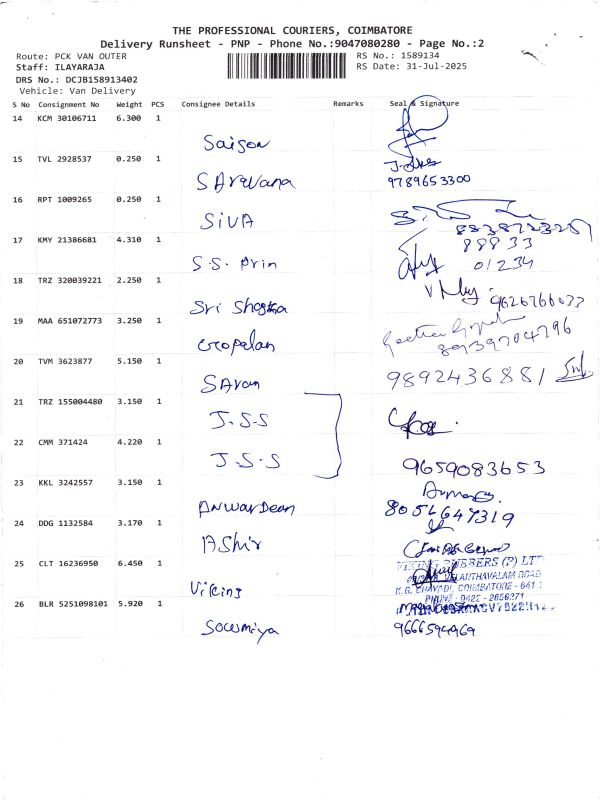 THE PROFESSIONAL COURIERS, COIMBATORE
Delivery Runsheet - PNP - Phone No.:9047080280 - Page No.:2
Route: PCK VAN OUTER
RS No.: 1589134
Staff: ILAYARAJA
RS Date: 31-Jul-2025
DRS No.: DCJB158913402
Vehicle: Van Delivery
S No Consignment No Weight PCS Consignee Details Remarks Seal & Signature
14 KCM 30106711 6.300 1
Saison
15 TVL 2928537 0.250 1
SAravana 9789653300
16 RPT 1009265 0.250 1
SiVA
17 KMY 21386681 4.310 1
88833
S.S. Prin 01234
18 TRZ 320039221 2.250 1
Sri Shastha
19 MAA 651072773 3.250 1
Gopalan
20 TVM 3623877 5.150 1
SAran 9892436881
21 TRZ 155004480 3.150 1
J.S.S
22 CMM 371424 4.220 1
J.S.S 9659083653
23 KKL 3242557 3.150 1
Anwardean 8056647319
24 DDG 1132584 3.170 1
AShir
25 CLT 16236950 6.450 1
VIKING RUBBERS (P) LTD
VELANTHAVALAM ROAD
Viking K.G. CHAVADI, COIMBATORE - 641
PHONE - 0422 - 2656271
26 BLR 5251098101 5.920 1
Sowmiya 9666594969